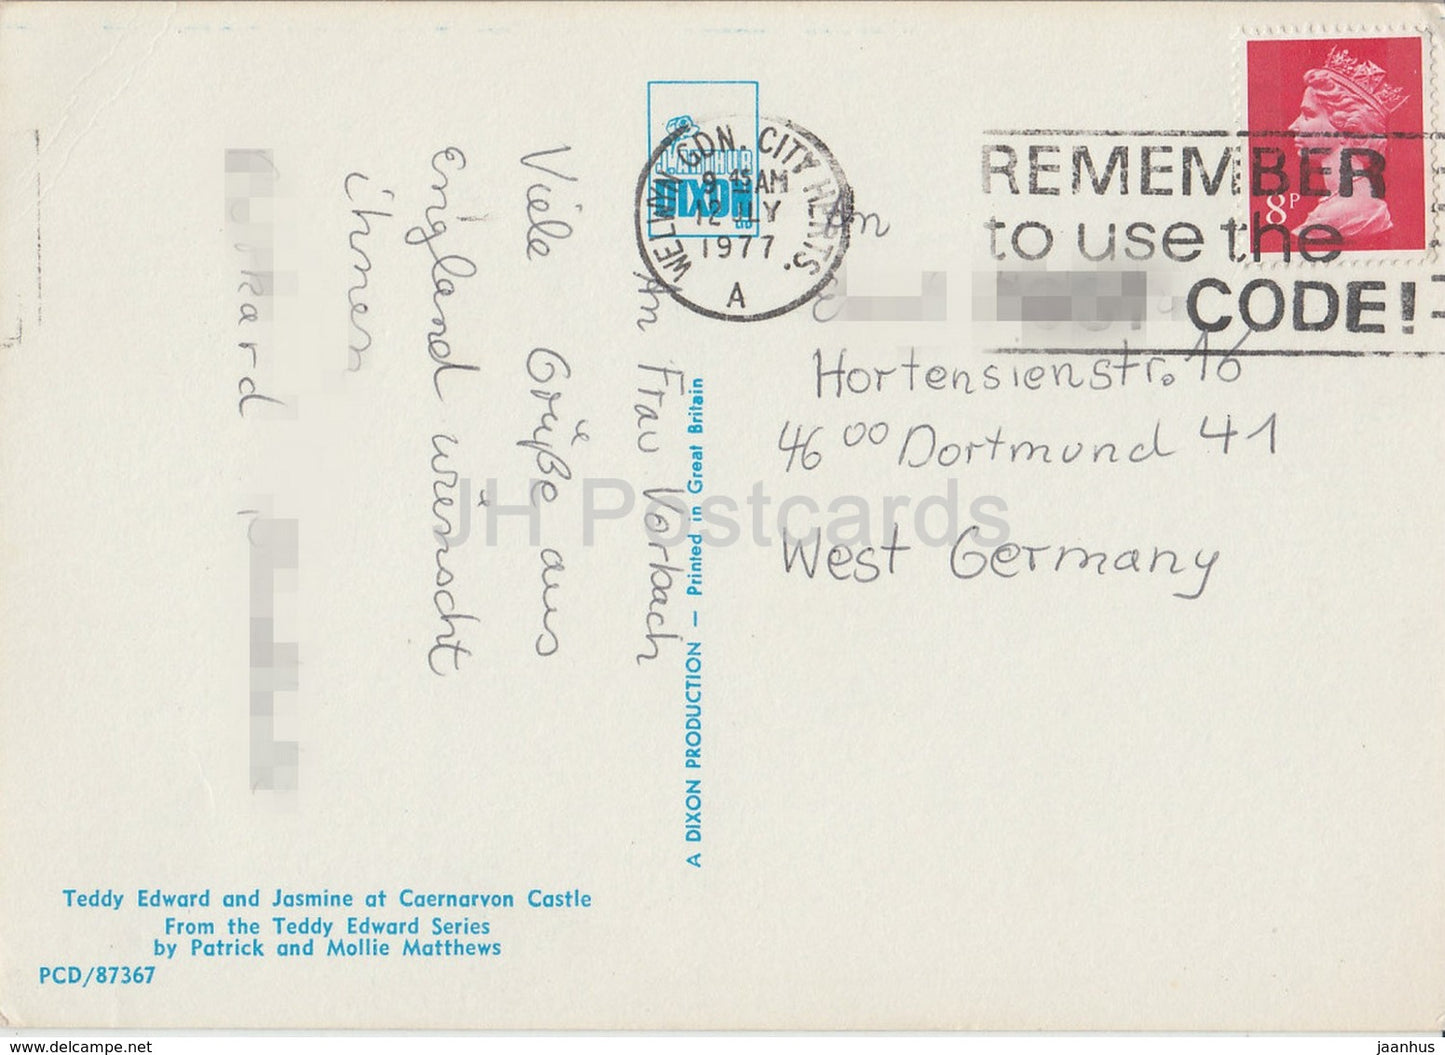 An Frau Vorbach
Viele Grüße aus
England wünscht
ihnen
WELWYN GDN. CITY HERTS.
9 45 AM
12 JLY
1977
A
J. ARTHUR
DIXON
REMEMBER
to use the
CODE!
8P
An
Hortensienstr. 16
4600 Dortmund 41
West Germany
A DIXON PRODUCTION — Printed in Great Britain
JH Postcards
Teddy Edward and Jasmine at Caernarvon Castle
From the Teddy Edward Series
by Patrick and Mollie Matthews
PCD/87367
www.delcampe.net
jaanhus